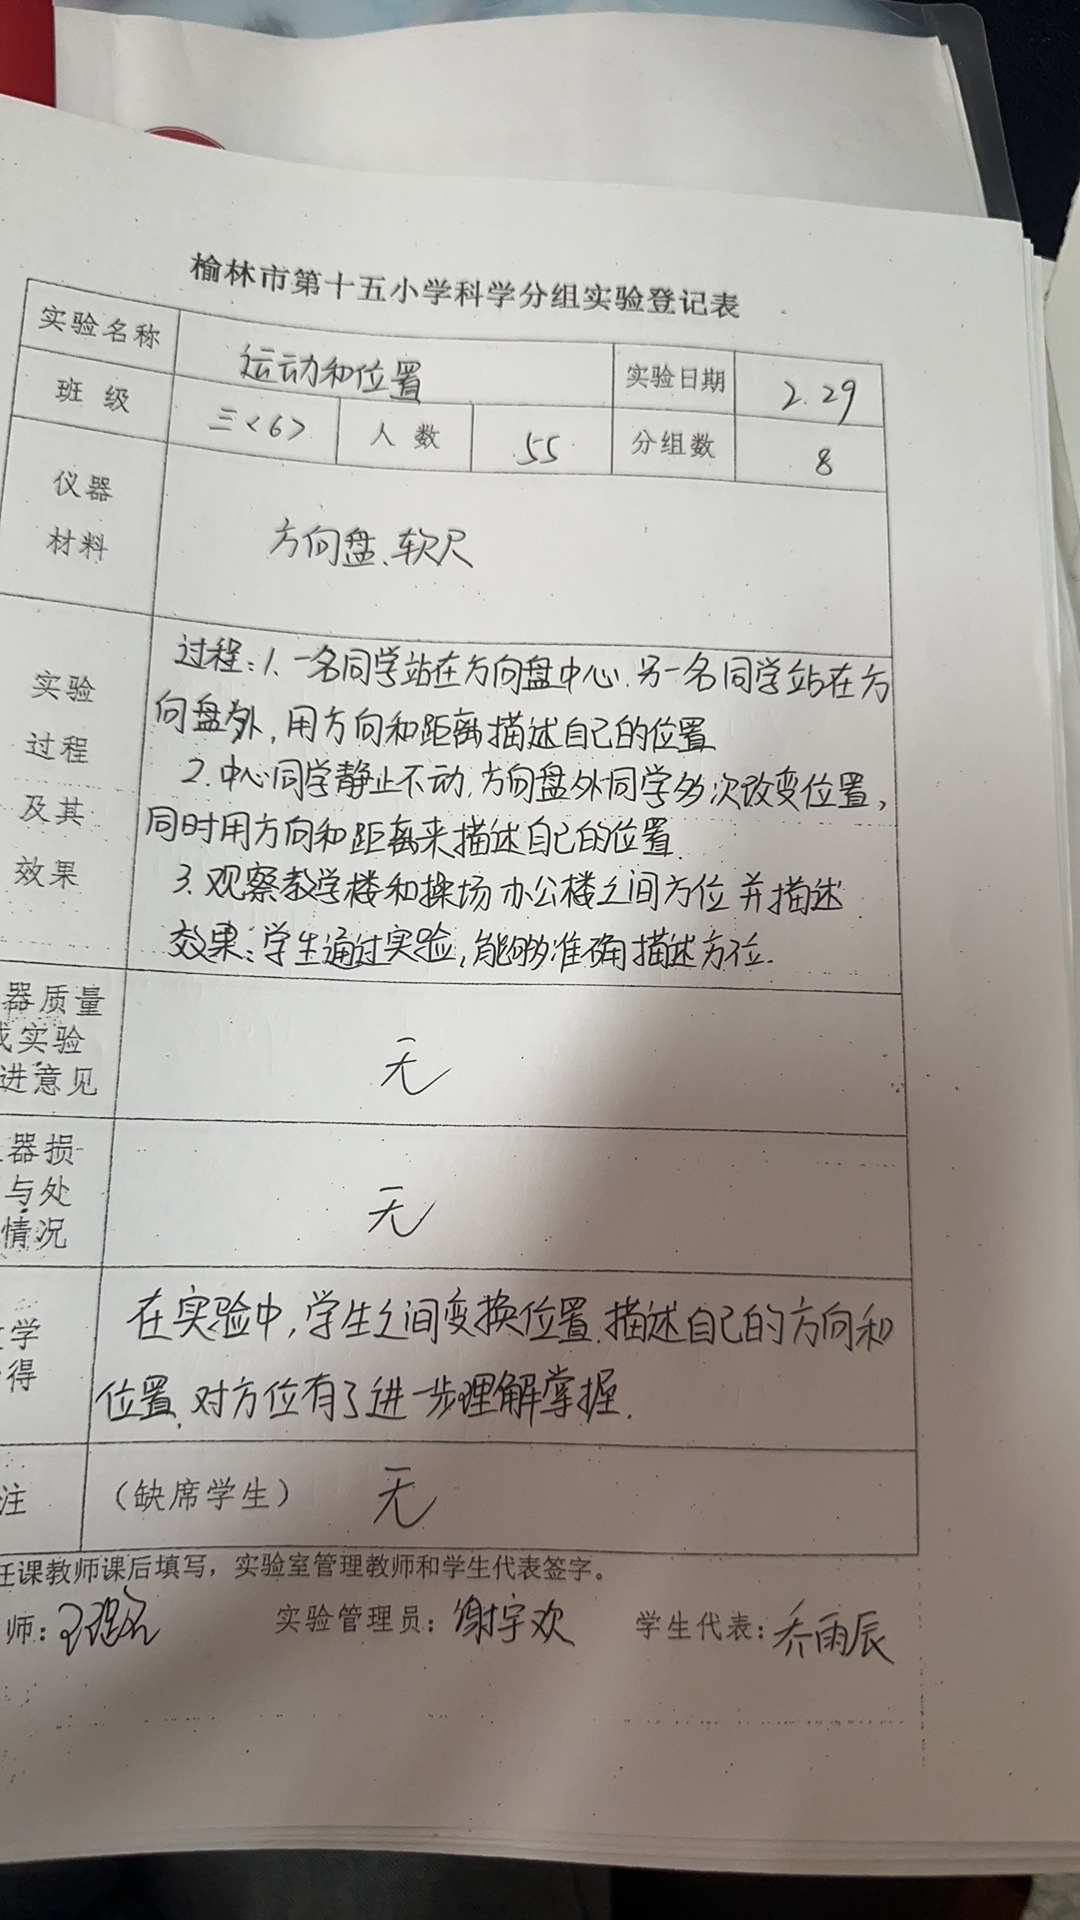 榆林市第十五小学科学分组实验登记表
实验名称 运动和位置 实验日期 2.29
班级 三<6> 人数 55 分组数 8
仪器
材料
方向盘、软尺
实验
过程
及其
效果
过程:1、一名同学站在方向盘中心.另一名同学站在方
向盘外,用方向和距离描述自己的位置
2.中心同学静止不动,方向盘外同学多次改变位置,
同时用方向和距离来描述自己的位置.
3.观察教学楼和操场 办公楼之间方位 并描述
效果:学生通过实验,能够准确描述方位.
器质量
或实验
进意见
无
器损
与处
情况
无
学
得
在实验中,学生之间变换位置.描述自己的方向和
位置.对方位有了进一步理解掌握.
注 (缺席学生) 无
任课教师课后填写,实验室管理教师和学生代表签字。
师: 实验管理员:谢宇欢 学生代表:乔雨辰